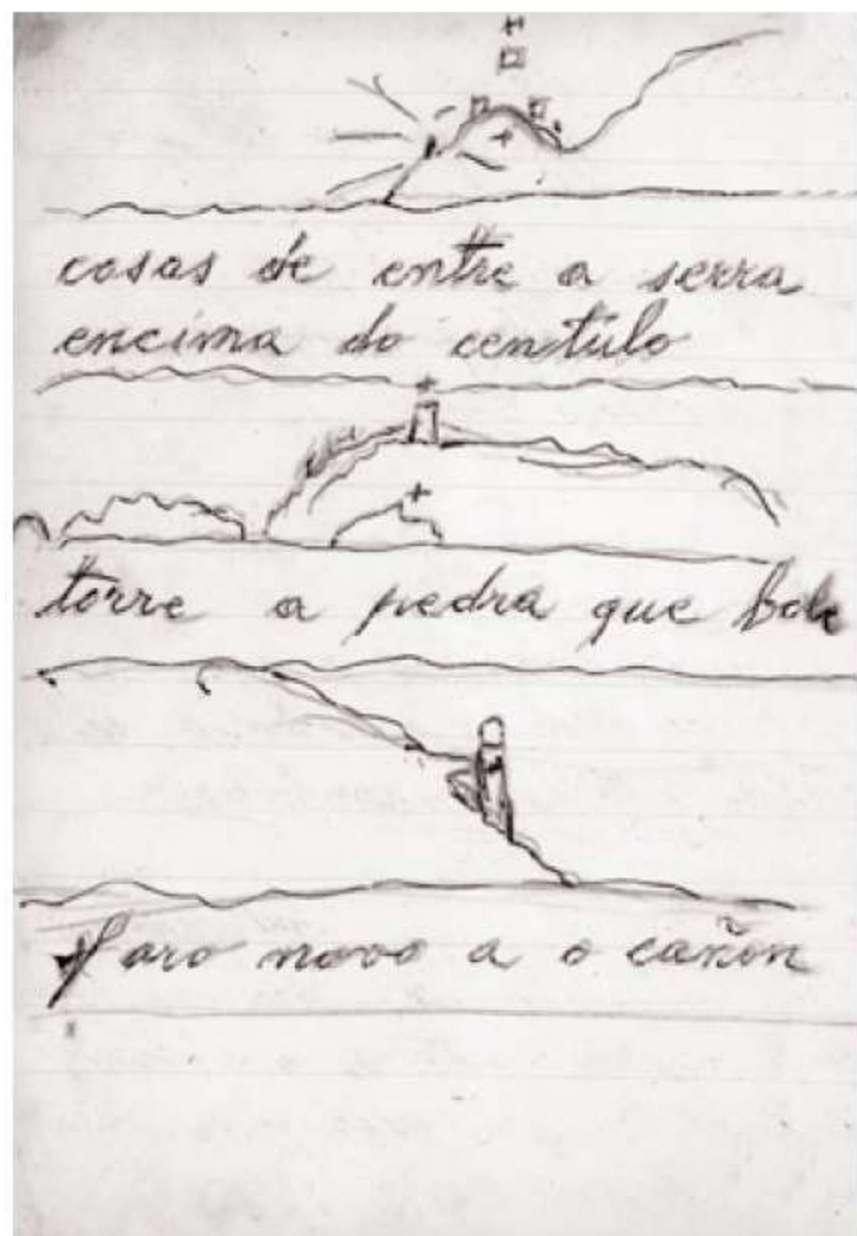 casas de entre a serra
encima do centulo
torre a pedra que bole
faro novo a o cañon